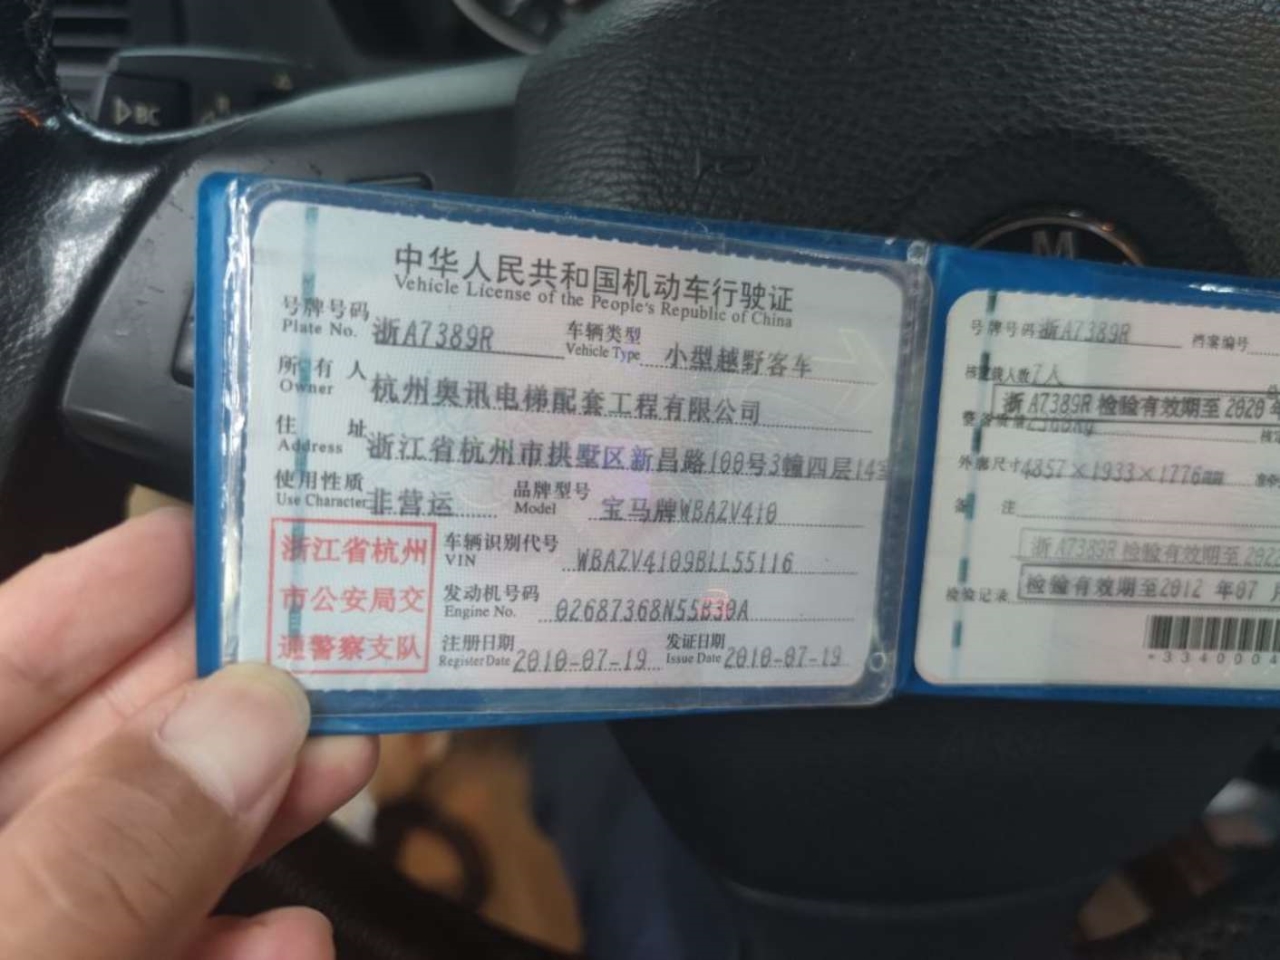 BC
中华人民共和国机动车行驶证
Vehicle License of the People's Republic of China
号牌号码 浙A7389R 车辆类型 小型越野客车
Plate No. Vehicle Type
所有人 杭州奥讯电梯配套工程有限公司
Owner
住址 浙江省杭州市拱墅区新昌路100号3幢四层14室
Address
使用性质 非营运 品牌型号 宝马牌WBAZV410
Use Character Model
浙江省杭州
市公安局交
通警察支队
车辆识别代号 WBAZV4109BLL55116
VIN
发动机号码 02687368N55B30A
Engine No.
注册日期 2010-07-19 发证日期 2010-07-19
Register Date Issue Date
号牌号码 浙A7389R 档案编号
核定载人数 7人
浙A7389R 检验有效期至 2020年
整备质量
外廓尺寸 4857×1933×1776mm
备注
浙A7389R 检验有效期至
检验记录 检验有效期至2012 年07 月
*3340004
M